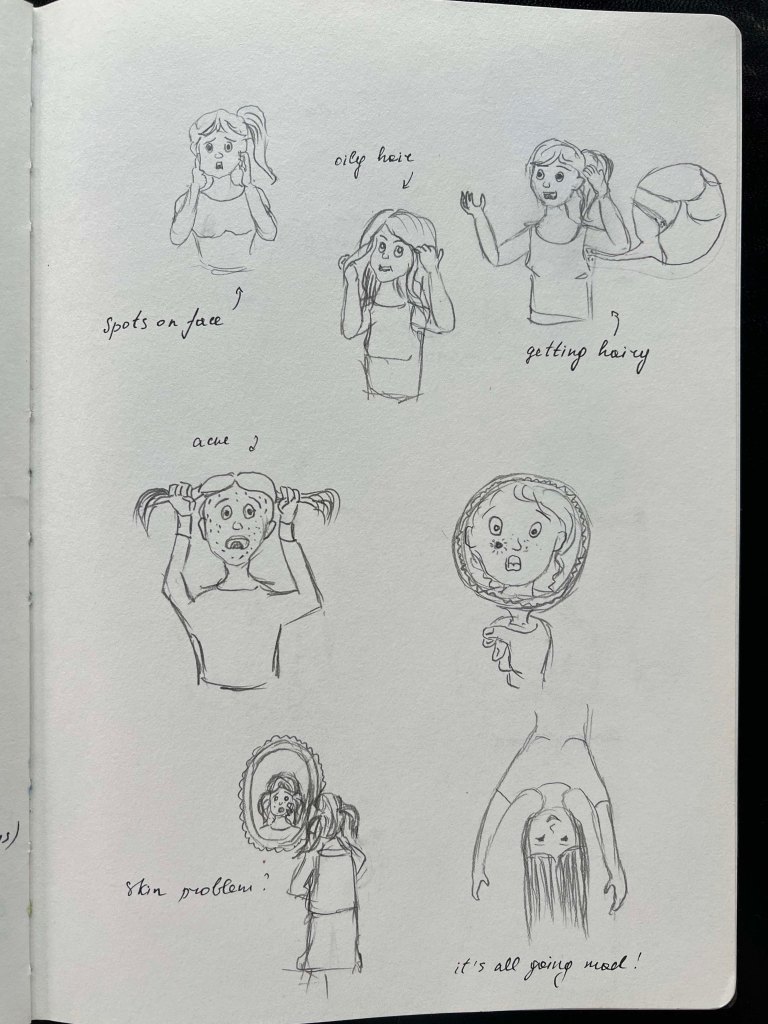 oily hair
spots on face
getting hairy
acne
skin problem?
it's all going mad!